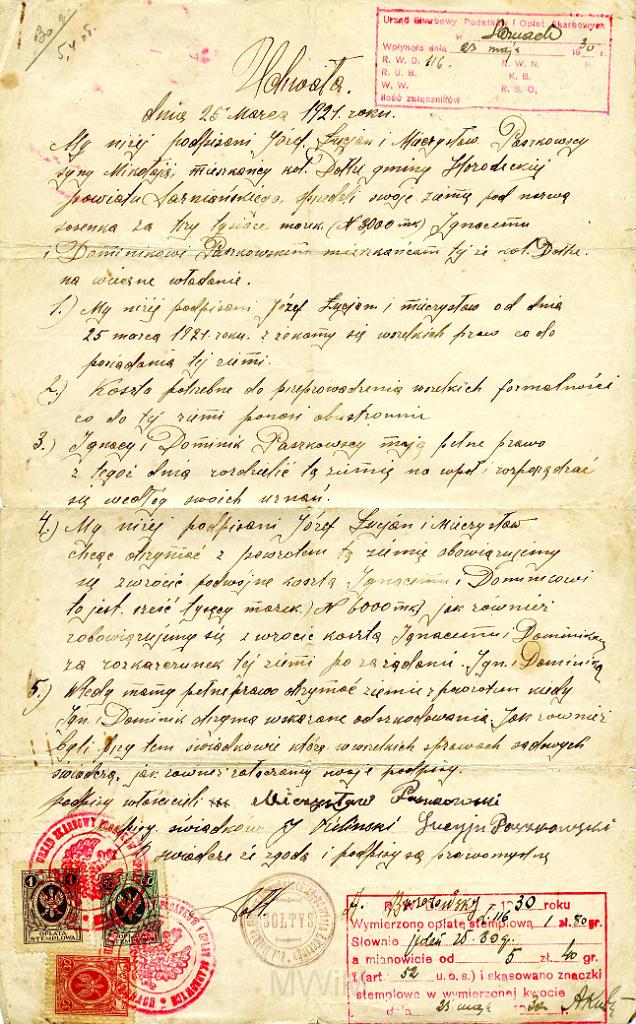 30
5,4 zł.
Urząd Skarbowy Podatków i Opłat Skarbowych
w
Wpłynęło dnia 23 maja 1930 r.
R. W. D. 116. R. W. N.
R. U. B. K. B.
W. W. R. S. O.
Ilość załączników
Uchwała.
dnia 25 Marca 1921. roku.
My niżej podpisani Józef Łucjan i Mieczysław Paszkowscy
syny Mikołaja, mieszkańcy kol. gminy Horodeckiej
powiatu Sarnieńskiego, swoje ziemią pod nazwą
sosenka za trzy tysiące marek (N 3000 mk) Ignacemu
i Dominikowi Paszkowskim mieszkańcam tej że kol.
na wieczne władanie.
1.) My niżej podpisani Józef Łucjan i Mieczysław od dnia
25 marca 1921 roku. zrzekamy się wszelkich praw co do
posiadania tej ziemi.
2.) Koszta potrzebne do przeprowadzenia wszelkich formalności
co do tej ziemi ponosi obustronnie
3.) Ignacy i Dominik Paszkowscy mają pełne prawo
z tegoż dnia rozdzielić tą ziemię na wpół i rozporządzać
się według swoich uznań.
4.) My niżej podpisani Józef Łucjan i Mieczysław
chcąc otrzymać z powrotem tą ziemię obowiązujemy
się zwrócić podwójne koszta Ignacemu i Dominikowi
to jest. sześć tysięcy marek.) N 6000 mk) jak również
zobowiązujemy się zwrócić koszta Ignacemu i
za tej ziemi po zarządaniu Ign. i Dominika
5.) Wtedy mamy pełne prawo otrzymać ziemię z powrotem kiedy
Ign. i Dominik otrzyma wskazane odszkodowania. Jak również
byli przy tem świadkowie którzy w wszelkich sprawach sądowych
świadczą, jak również załączamy swoje podpisy.
podpisy właścicieli Mieczysław Paszkowski
podpisy świadków J Łucyjn Paszkowski
świadczę że zgoda i podpisy są prawomyslne
Sołt.
SOŁTYS
URZĄD SKARBOWY PODATKÓW
1
OPŁATA
STEMPLOWA
R. W. D. 1930 roku
№ 116
Wymierzono opłatę stemplową 1 zł. 80 gr.
Słownie jeden zł. 80 gr.
a mianowicie od 5 zł. 40 gr.
(art 52 u.o.s.) i skasowano znaczki
stemplowe w wymierzonej kwocie
dnia 23 maja 30
MWiM